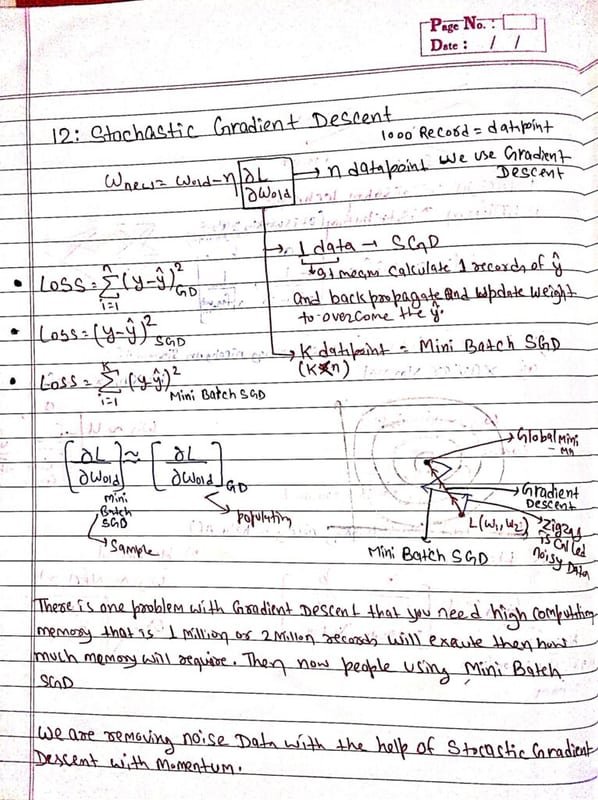 Page No. :
Date : / /
12: Stochastic Gradient Descent
1000 Record = datapoint
Wnew = Wold - η ∂L/∂Wold → n datapoint we use Gradient Descent
→ 1 data → SGD
↳ It mean calculate 1 records of ŷ
and backpropagate and update weight
to overcome the ŷ.
→ K datapoint = Mini Batch SGD
(K<n)
• Loss = Σ i=1 n (y-ŷ)² GD
• Loss = (y-ŷ)² SGD
• Loss = Σ i=1 K (y-ŷ)² Mini Batch SGD
[∂L/∂Wold] ≈ [∂L/∂Wold] GD
Mini
Batch
SGD
→ Sample
→ population
→ Global Mini
- ma
→ Gradient
Descent
L(W1, W2)
→ Zigzag
is Called
noisy Data
Mini Batch SGD
There is one problem with Gradient Descent that you need high computting
memory that is 1 Million or 2 Millon records will exeute then how
much memory will require. Then now people using Mini Batch
SGD
We are removing noise Data with the help of Stocastic Gradient
Descent with momentum.